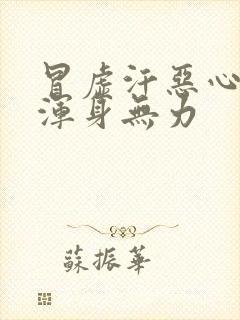 冒虛汗惡心
渾身無力
蘇振華